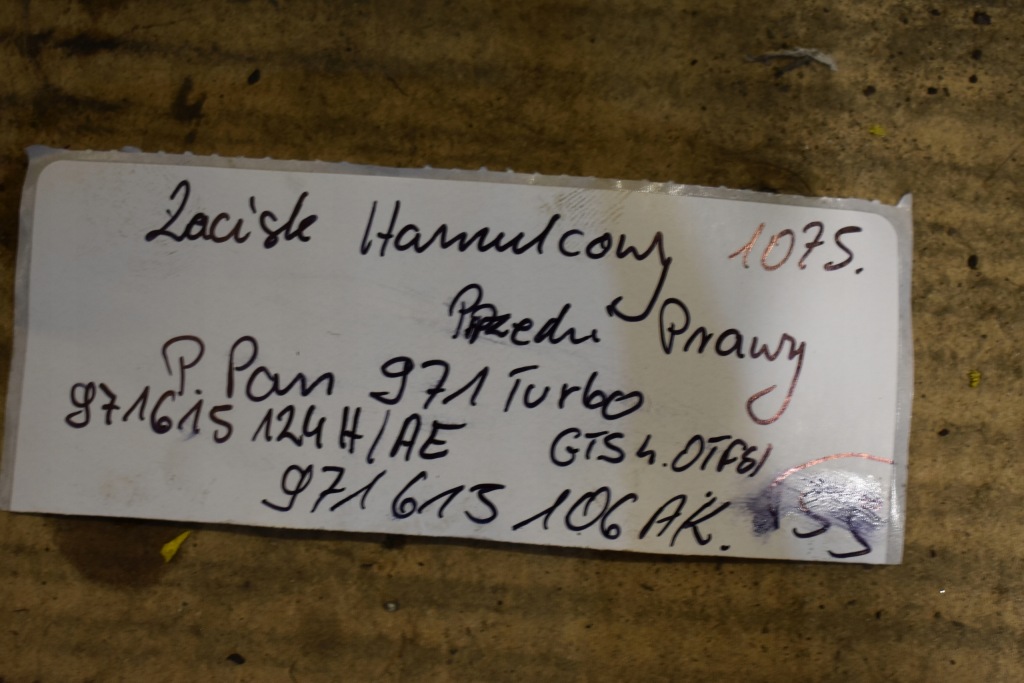 Zacisk Hamulcowy 1075.
Przedni Prawy
P. Pan 971 Turbo
971615 124H/AE GTS
971 615 106 AK.